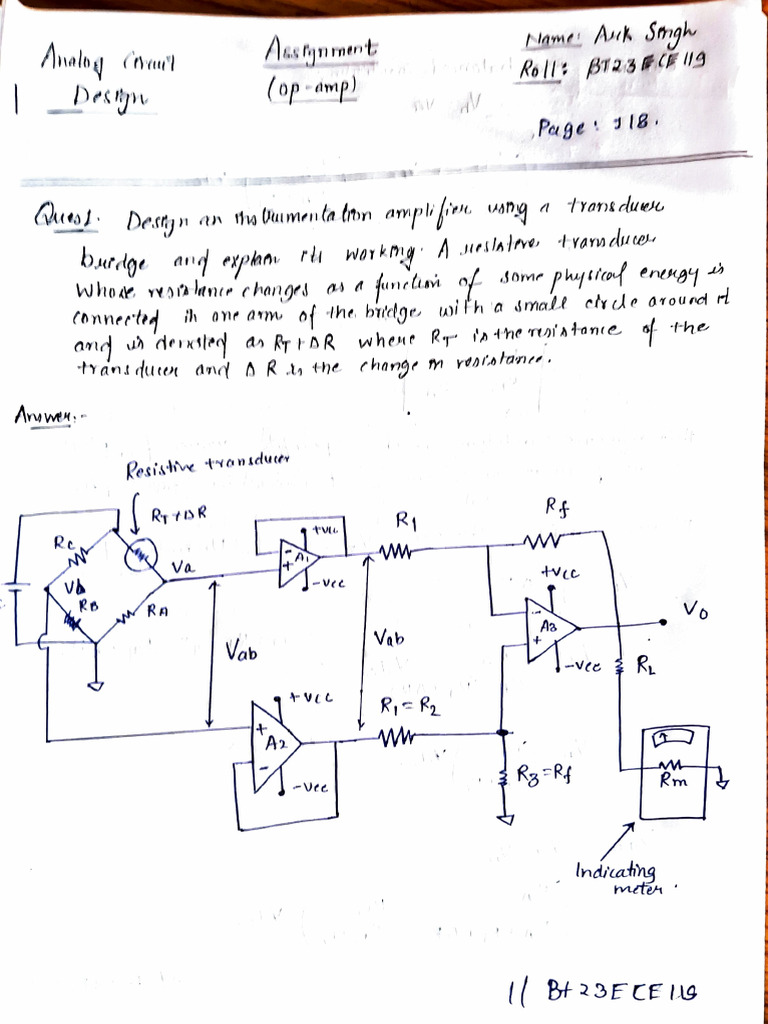 Analog Circuit
Design
Assignment
(op-amp)
Name:
Roll: BT23ECE119
Page: 118.
Ques1. Design an instrumentation amplifier using a transducer
bridge and explain its working. A resistive transducer
whose resistance changes as a function of some physical energy is
connected in one arm of the bridge with a small circle around it
and is denoted as RT+ΔR where RT is the resistance of the
transducer and ΔR is the change in resistance.
Answer:-
Resistive transducer
RT+ΔR
RC
Va
Vb
RB
RA
Vab
+Vcc
-
+
A1
-Vcc
R1
Rf
+Vcc
-
+
A3
-Vcc
Vo
Vab
RL
+Vcc
+
A2
-
-Vcc
R1=R2
R3=Rf
Rm
Indicating
meter.
1/ Bt23ECE119